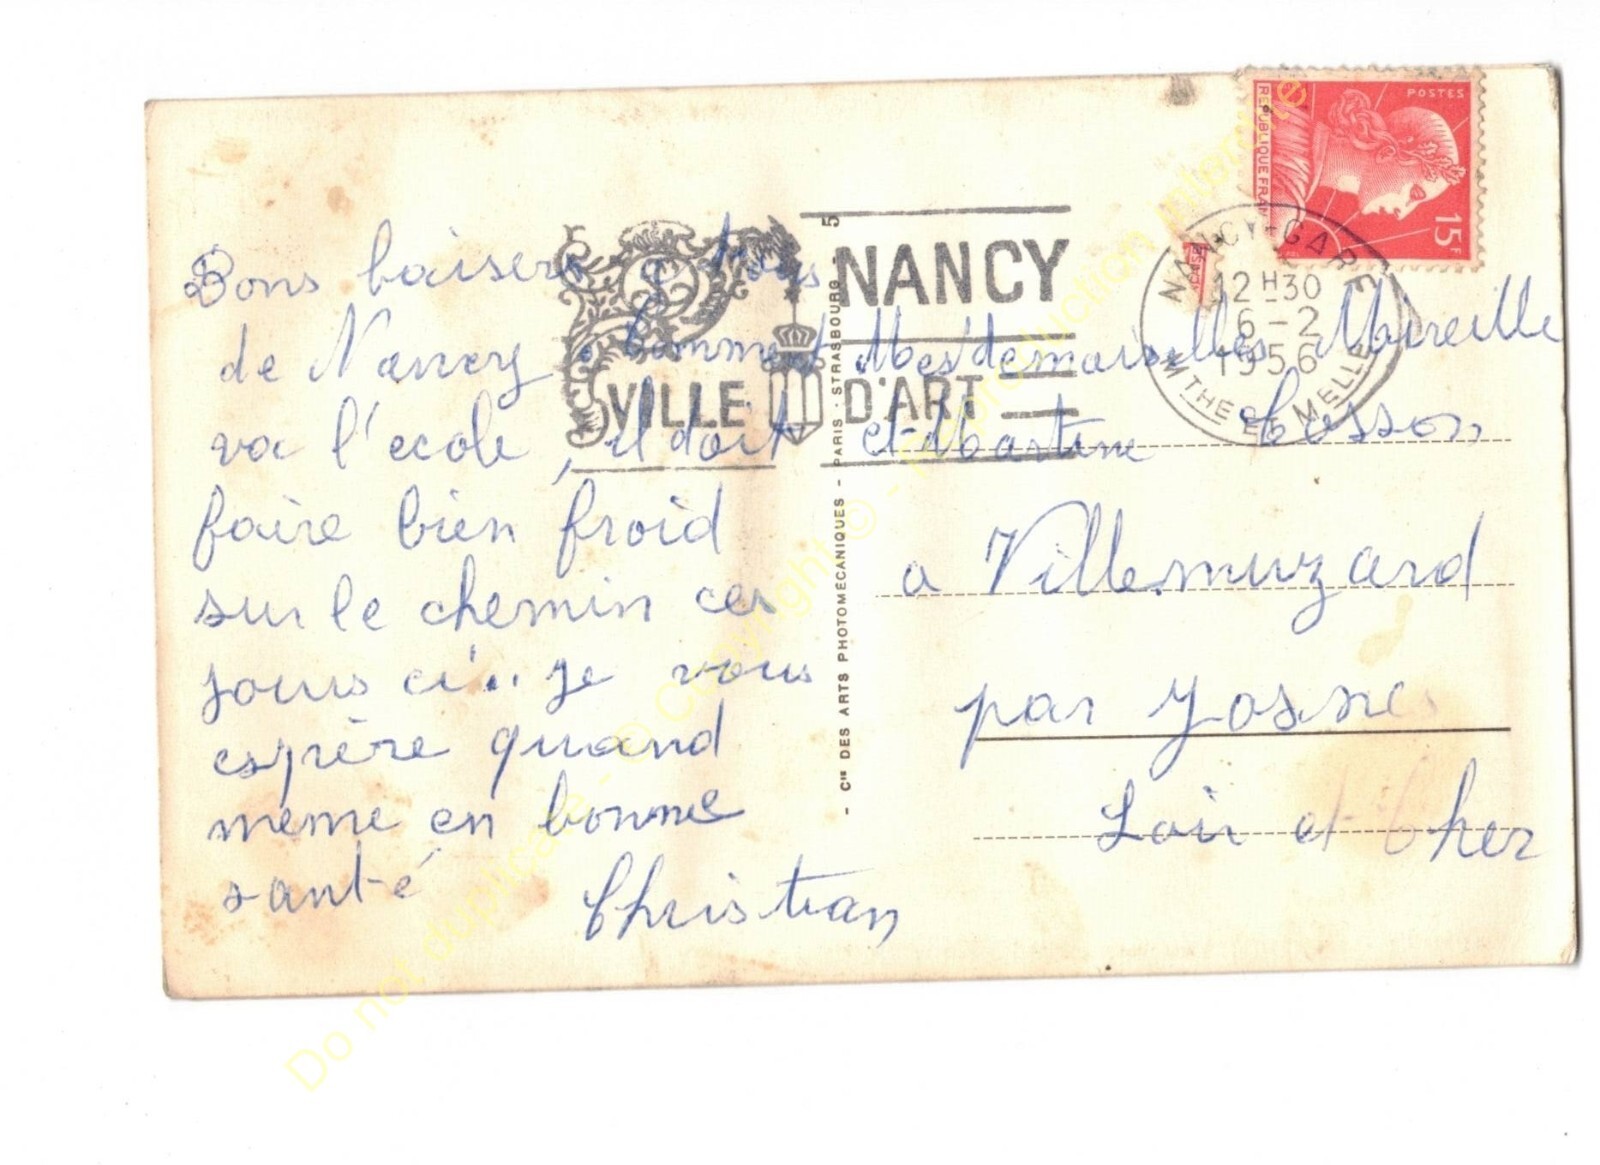 Bons baisers à tous
de Nancy. Comment
va l'ecole, il doit
faire bien froid
sur le chemin ces
jours ci... je vous
espère quand
meme en bonne
santé
Christian
NANCY
VILLE D'ART
5
- Cie DES ARTS PHOTOMECANIQUES - PARIS - STRASBOURG -
POSTES
REPUBLIQUE FRAN
15F
NANCY-GARE
12H30
6-2
1956
MTHE ET MELLE
Mesdemoiselles Mireille
et Martine Cosson
a Villemuzard
par Josnes
Loir et Cher
Do not duplicate - © Copyright © - Reproduction interdite